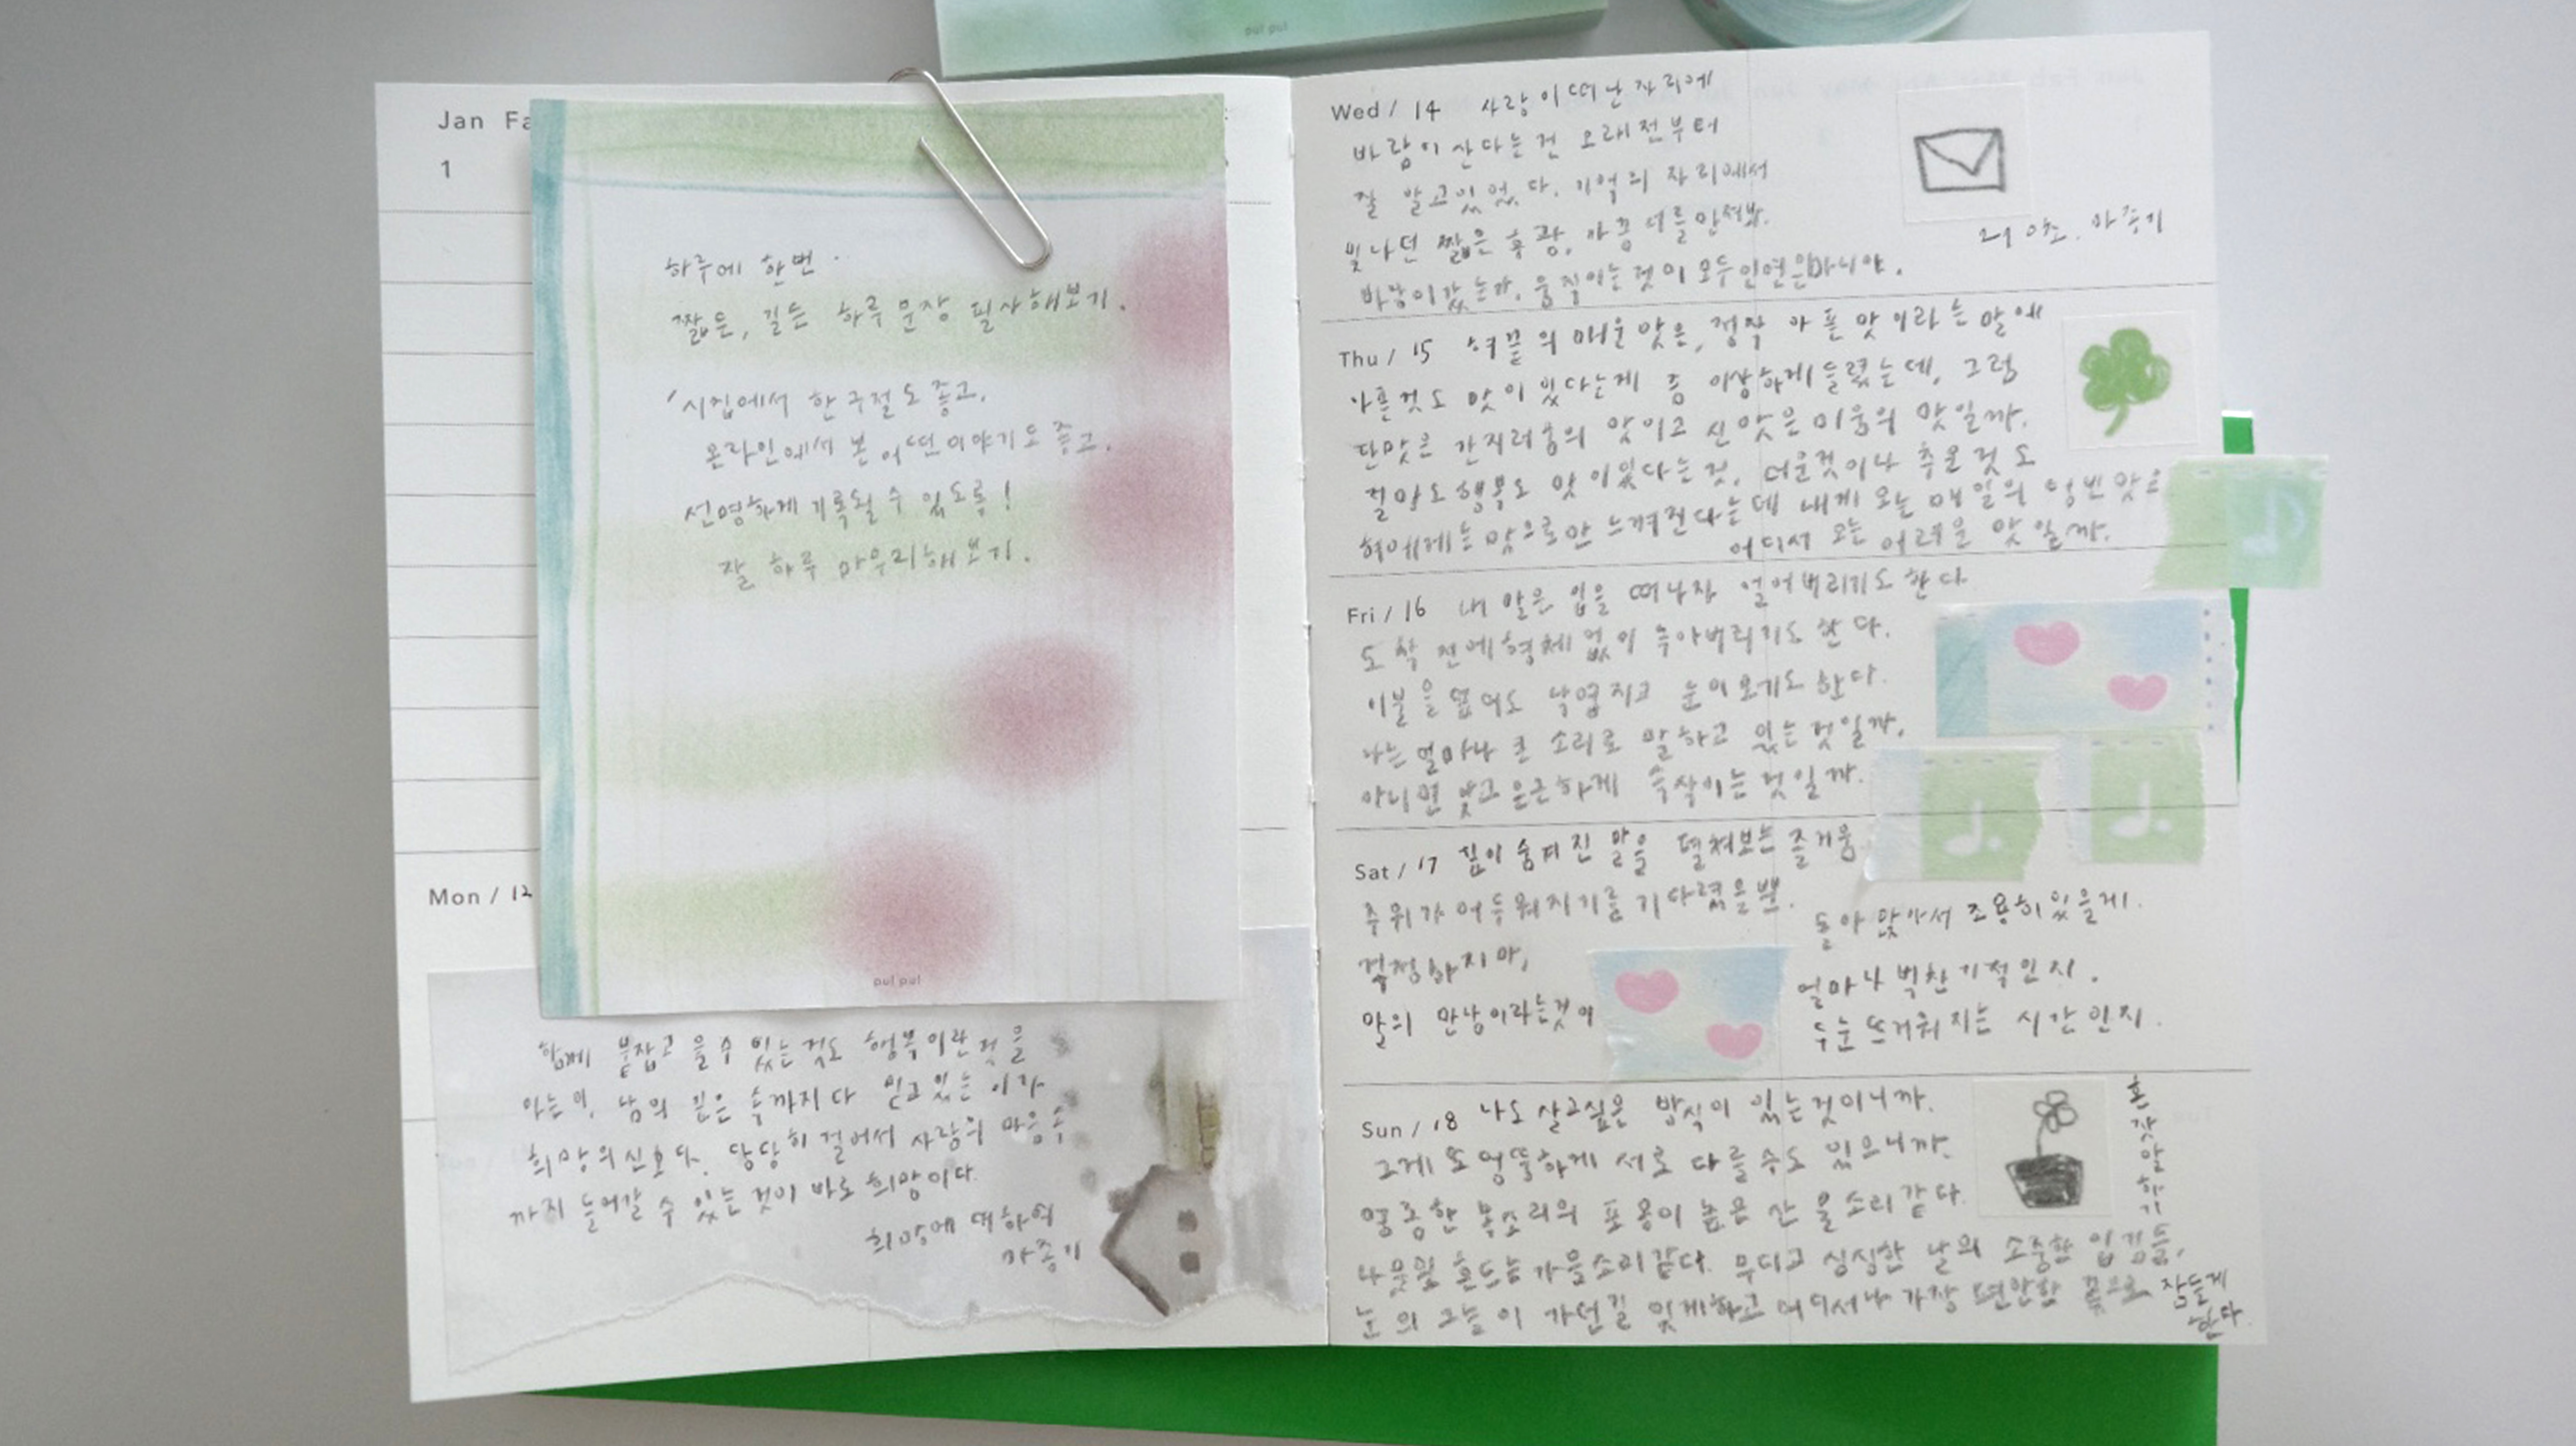 pul pul
Jan Fa
1
하루에 한번.
짧든, 길든 하루 문장 필사해보기.
'시집에서 한 구절도 좋고,
온라인에서 본 어떤 이야기도 좋고.
선명하게 기록될 수 있도록!
잘 하루 마무리해보기.
pul pul
Mon / 12
함께 붙잡고 울 수 있는 것도 행복이란 것을
아는 이, 남의 깊은 속까지 다 믿고 있는 이가
희망의 신호다. 당당히 걸어서 사랑의 마음속
까지 들어갈 수 있는 것이 바로 희망이다.
희망에 대하여
마종기
Wed / 14 사랑이 떠난 자리에
바람이 산다는 건 오래전부터
잘 알고 있었다. 기억의 자리에서
빛나던 짧은 황광, 아픔
바람이 갔는가, 움직이는 것이 모두 인연은 아니야.
마종기
Thu / 15 혀끝의 매운 맛은, 정작 아픈 맛이라는 말에
아픈 것도 맛이 있다는게 좀 이상하게 들렸는데, 그럼
단맛은 간지러움의 맛이고 신맛은 미움의 맛일까.
절망도 행복도 맛이 있다는 것, 더운 것이나 추운 것도
혀에게는 맛으로만 느껴진다는데 내게 오는 매일의 텅빈 맛은
어디서 오는 어려운 맛일까.
Fri / 16 내 말은 입을 떠나자 얼어버리기도 한다
도착 전에 형체 없이 녹아버리기도 한다.
이불을 덮어도 낙엽 지고 눈이 오기도 한다.
나는 얼마나 큰 소리로 말하고 있는 것일까,
아니면 낮고 은근하게 속삭이는 것일까.
Sat / 17 깊이 숨겨진 말을 펼쳐보는 즐거움
주위가 어두워지기를 기다렸을 뿐.
돌아 앉아서 조용히 있을게.
걱정하지 마,
말의 만남이라는 것이
얼마나 벅찬 기적인지.
두 눈 뜨거워지는 시간인지.
Sun / 18 나도 살고 싶은 방식이 있는 것이니까.
그게 또 엉뚱하게 서로 다를 수도 있으니까.
영롱한 목소리의 포용이 높은 산 울 소리 같다.
나뭇잎 흔드는 가을소리 같다. 무디고 싱싱한 날의 소중한 입김들,
눈의 그늘이 가던 길 잊게하고 어디서나 가장 편안한 잠들게
한다.
혼잣말하기